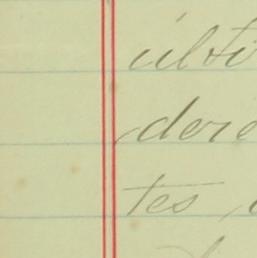 últi
dere
tes